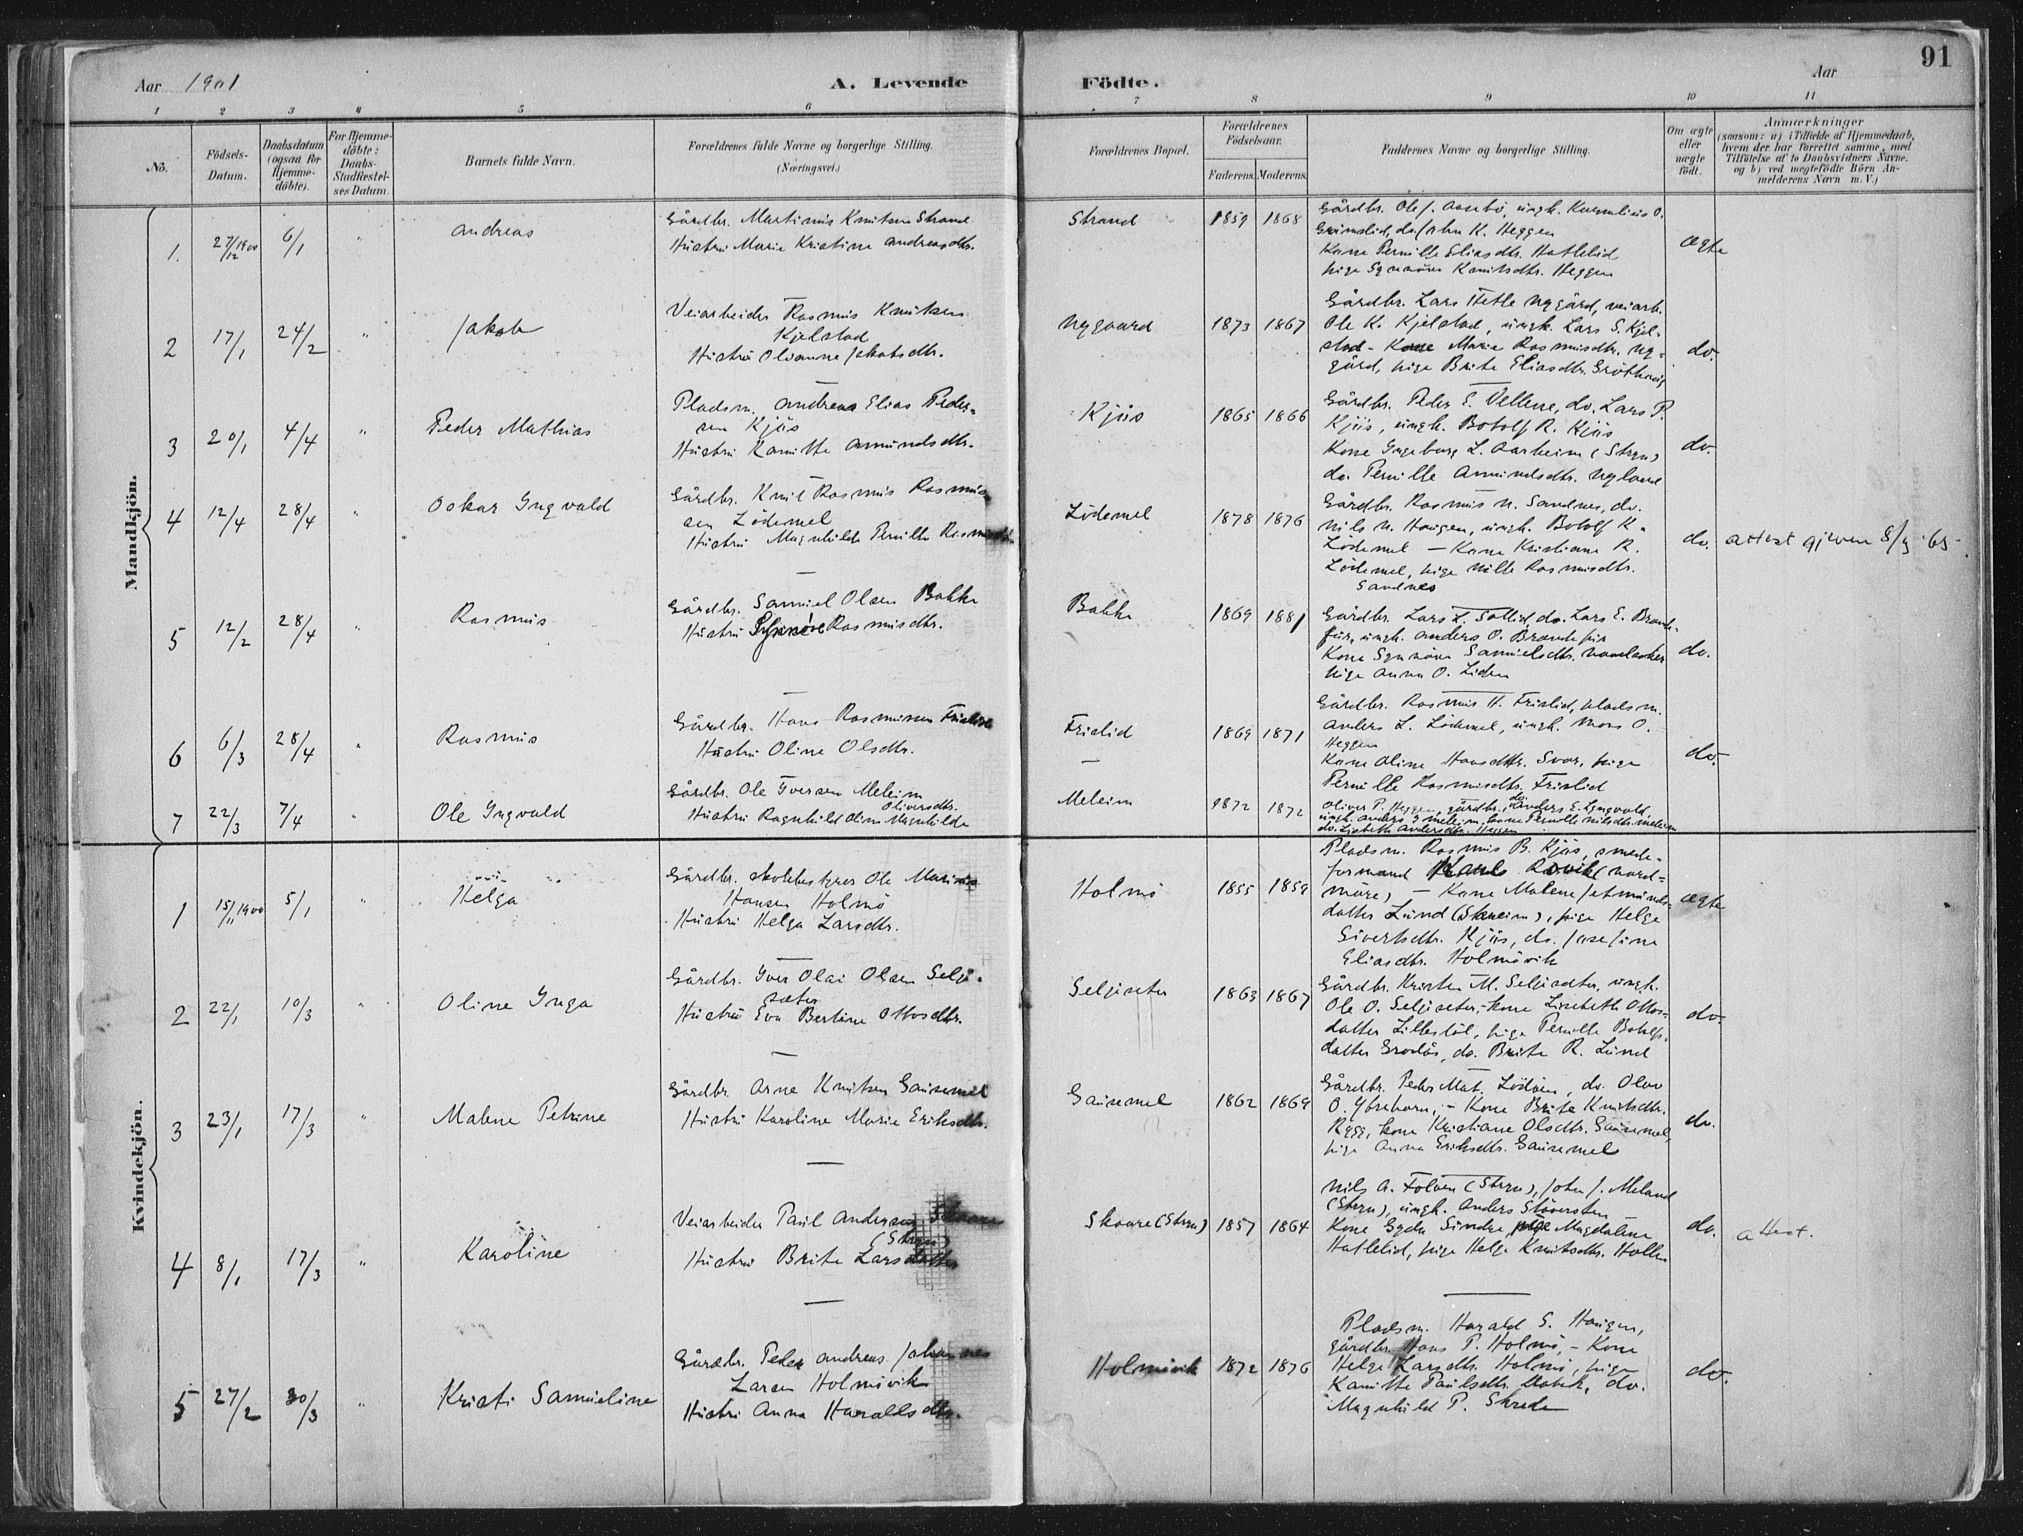 91
Aar 1901 A. Levende Födte. Aar
1 2 3 4 5 6 7 8 9 10 11
No.
Födsels-
Datum.
Daabsdatum
(ogsaa for
Hjemme-
döbte).
For Hjemme-
döbte:
Daabs-
Stadfæstel-
ses Datum.
Barnets fulde Navn.
Forældrenes fulde Navne og borgerlige Stilling.
(Næringsvei.)
Forældrenes Bopæl.
Forældrenes
Födselsaar.
Faderens. Moderens.
Faddernes Navne og borgerlige Stilling.
Om ægte
eller
uægte
födt.
Anmærkninger
(saasom: a) i Tilfælde af Hjemmedaab,
hvem der har forrettet samme, med
Tilföielse af to Daabsvidners Navne.
og b) ved uægtefödte Börn An-
melderens Navn m. V.)
Mandkjön.
1. 27/12 1900 6/1 " Andreas
Gårdbr. Martinus Knutsen Strand
Hustru Marie Kristine Andreasdtr.
Strand 1859 1868
Gårdbr. Ole J. Aasebö, ungk. Kornelius O.
Grimslid, do. John K. Heggen
Kone Pernille Eliasdtr. Hatlelid
pige Synnöve Knutsdtr. Heggen
ægte
2 17/1 24/2 " Jakob
Veiarbeider Rasmus Knutsen
Kjelstad
Hustru Olianne Jakobsdtr.
Nygaard 1873 1867
Gårdbr. Lars Hetle Nygård, veiarb.
Ole K. Kjelstad, ungk. Lars S. Kjel-
stad - Kone Marie Rasmusdtr. Ny-
gård, pige Brite Eliasdtr.
do.
3 20/1 4/4 " Peder Mathias
Pladsm. Andreas Elias Peder-
sen Kjös
Hustru Kamitte Amundsdtr.
Kjös 1865 1866
Gårdbr. Peder E. Vellene, do. Lars P.
Kjös, ungk. Botolf R. Kjös
Kone Ingeborg L. Aarheim (Stryn)
do. Pernille Amundsdtr. Nyland
do.
4 12/4 28/4 " Oskar Ingvald
Gårdbr. Knut Rasmus Rasmus-
sen Lödemel
Hustru Magnhilde Pernille
Lödemel 1878 1876
Gårdbr. Rasmus N. Sandnes, do.
Nils N. Haugen, ungk. Botolf K.
Lödemel - Kone Kristiane R.
Lödemel, pige Nille Rasmusdtr.
Sandnes
do. attest gjeven
5 12/2 28/4 Rasmus
Gårdbr. Samuel Olsen Bakke
Hustru Synnöve Rasmusdtr.
Bakke 1869 1881
Gårdbr. Lars L. Sollid, do. Lars E. Brande-
fur, ungk. Anders O. Brandefur
Kone Synnöve Samuelsdtr.
pige Anna O. Liden
do.
6 6/3 28/4 " Rasmus
Gårdbr. Hans Rasmusen Frislid
Hustru Oline Olsdtr.
Frislid 1869 1871
Gårdbr. Rasmus H. Frislid, pladsm.
Anders L. Lödemel, ungk. Mons O.
Heggen
Kone Oline Hansdtr. Svor, pige
Pernille Rasmusdtr. Frislid
do.
7 22/3 7/4 " Ole Ingvald
Gårdbr. Ole Iversen Meleim
Oliversdtr.
Hustru Ragnhild Oline Magnhilde
Meleim 1872 1872
Oliver P. Heggen, gårdbr. do. Anders E. Lyngvold
ungk. Anders I. Meleim, kone Pernille Nilsdtr. Meleim
do. Lisbeth Andersdtr. Heggen
Kvindekjön.
1 15/11 1900 5/1 " Helga
Gårdbr. skolebestyrer Ole Martinus
Hansen Holmö
Hustru Helga Larsdtr.
Holmö 1855 1859
Pladsm. Rasmus B. Kjös, smede-
formand (Nord-
möre) - Kone Malene Jetmunds-
datter Lund (Skreim), pige Helge
Sivertsdtr. Kjös, do. Josefine
Eliasdtr. Holmövik
ægte
2 22/1 10/3 " Oline Inga
Gårdbr. Iver Olai Olsen Selje-
sæter
Hustru Eva Bertine Ottosdtr.
Seljeseter 1863 1867
Gårdbr. Kristen M. Seljesæter, ungk.
Ole O. Seljeseter, - kone Lisebeth Ottos-
datter Lillestöl, pige Pernille Botolfs-
datter Grodås, do. Brite R. Lund
do.
3 23/1 17/3 " Malene Petrine
Gårdbr. Arne Knutsen Gausemel
Hustru Karoline Marie Eriksdtr.
Gausemel 1862 1869
Gårdbr. Peder Mat. Lödöen, do. Olav
O. Ytrehorn, - Kone Brite Knutsdtr.
Rygg, kone Kristiane Olsdtr. Gausemel,
pige Anna Eriksdtr. Gausemel
do.
4 8/1 17/3 " Karoline
Veiarbeider Paul Andersen Skaare
(Stryn)
Hustru Brite Larsdatter
Skaare (Stryn) 1857 1864
Nils A. Folven (Stryn), John J. Meland
(Stryn), ungk. Anders Stöversten
Kone Gyda Sindre, pige Magdalene
Hatlelid, pige Helge Knutsdtr. Hollen
do. attest.
5 27/2 30/3 " Kristi Samueline
Gårdbr. Peder Andreas Johannes
Larsen Holmövik
Hustru Anna Haraldsdtr.
Holmövik 1872 1876
Pladsm. Harald S. Haugen,
gårdbr. Hans P. Holmö, - Kone
Helge Larsdtr. Holmö, pige
Kamitte Paulsdtr. do.
Magnhild P. Skrede
do.